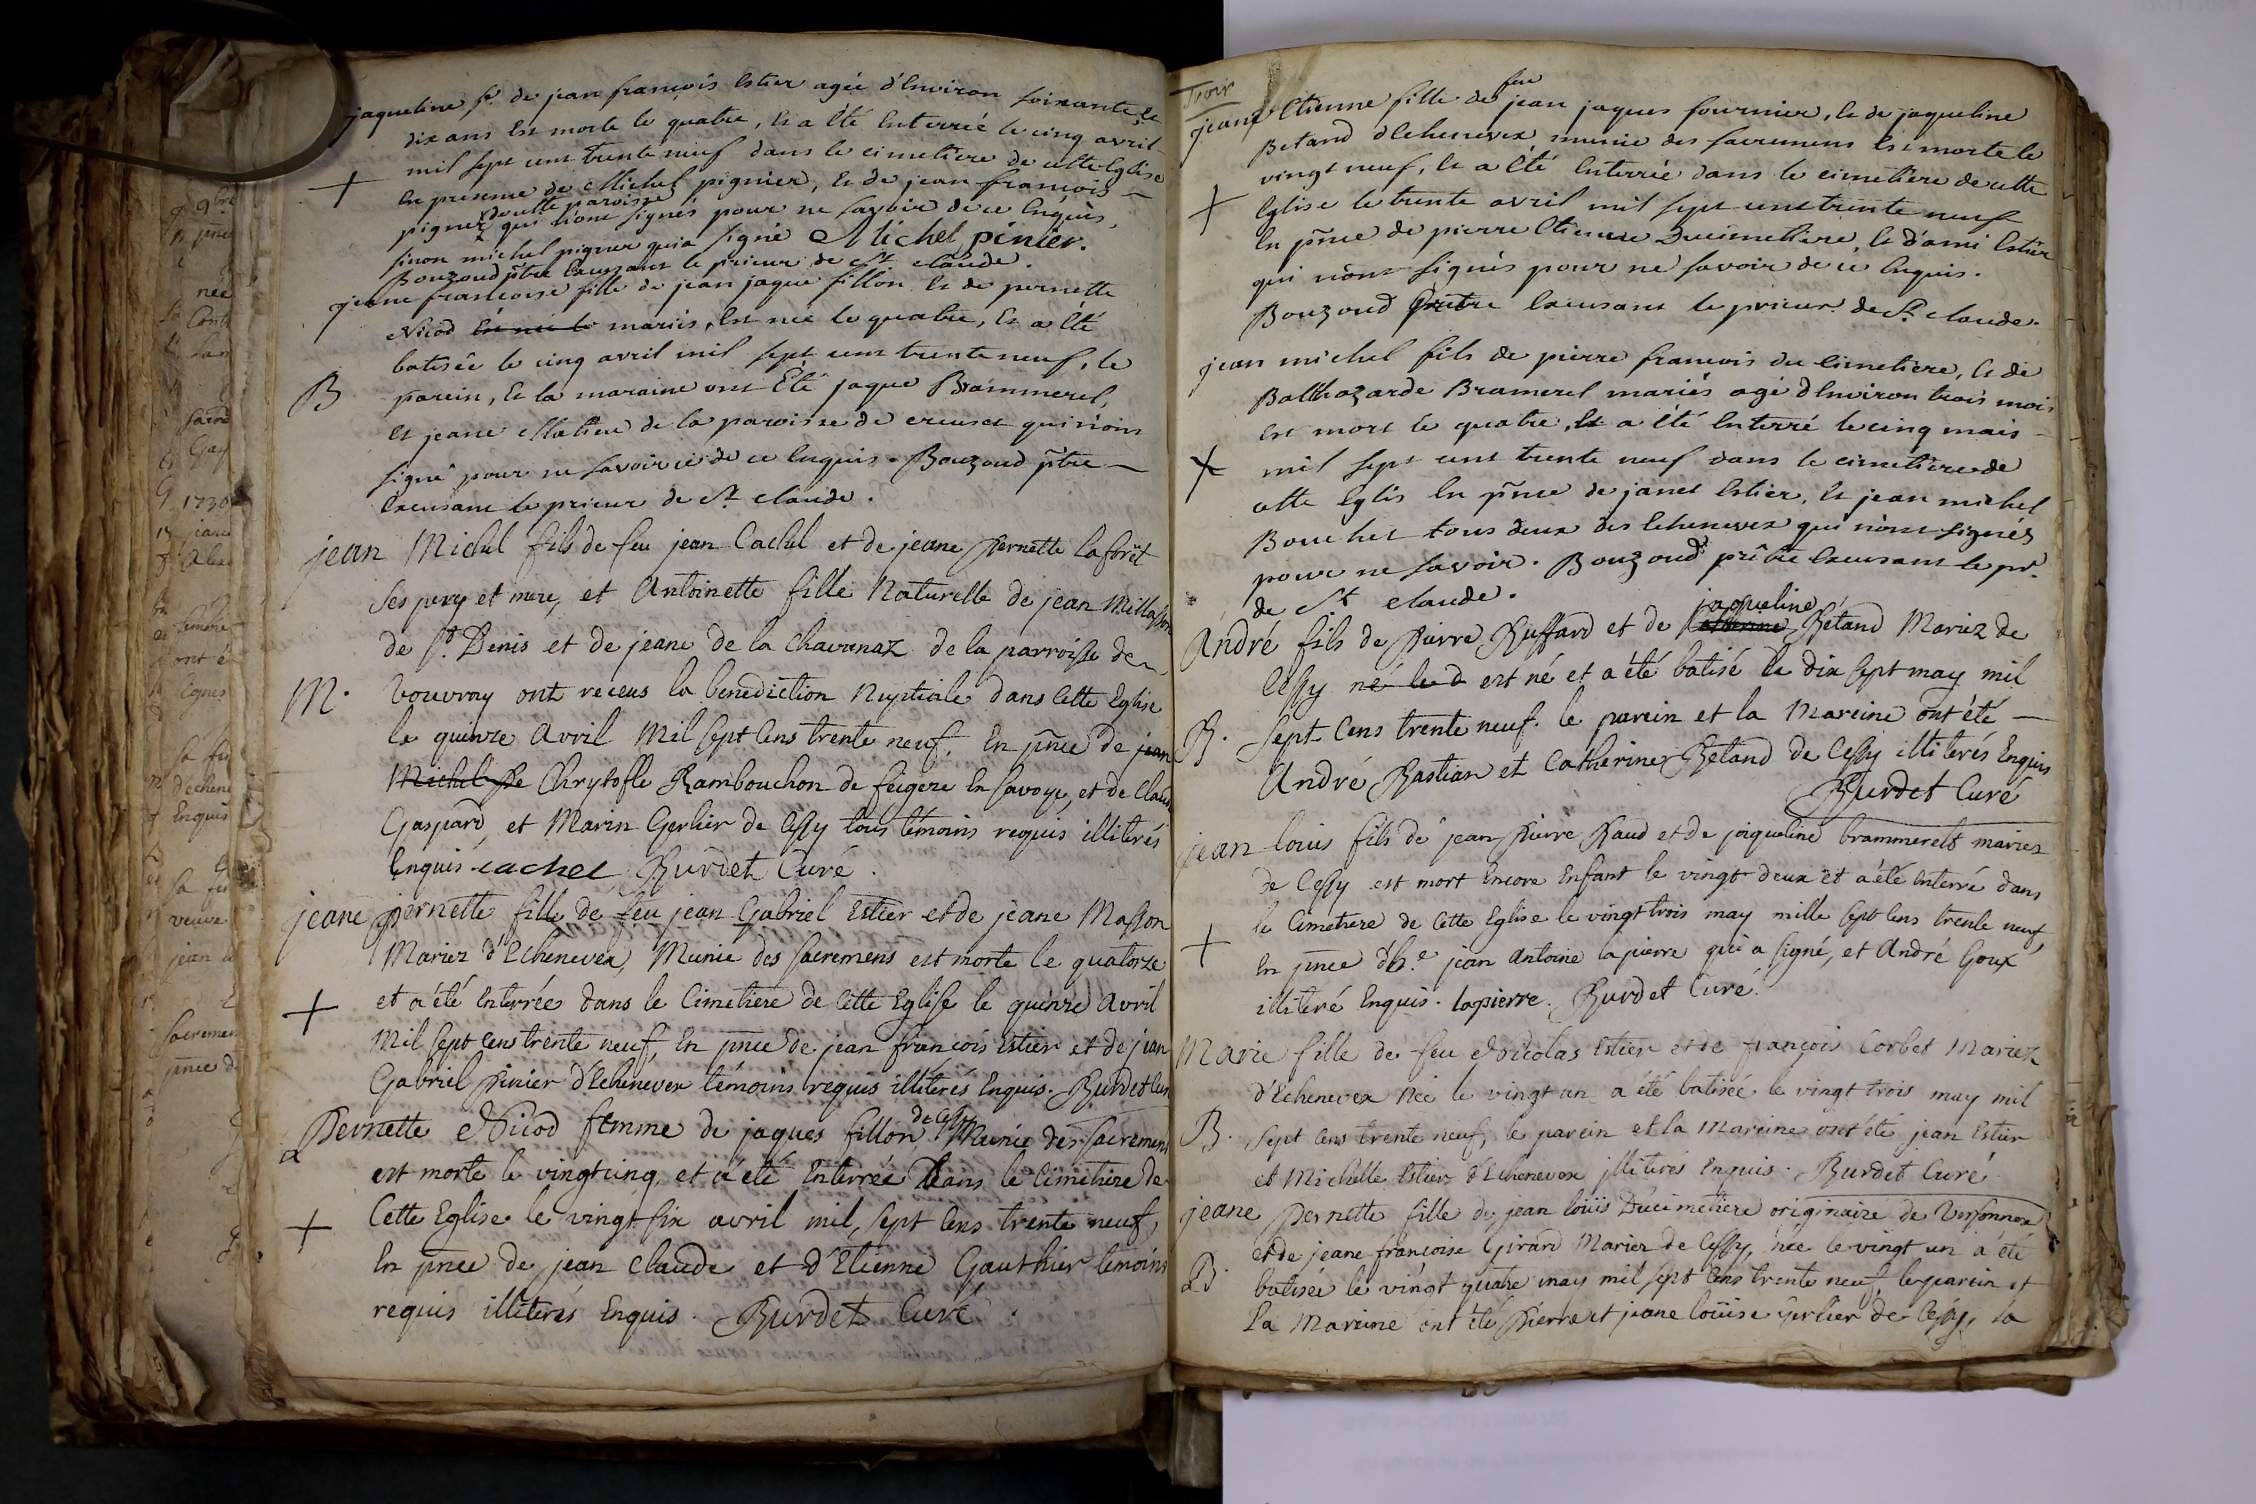 jaqueline fe. de jean françois Estier agée d'Environ soixante et
dix ans Est morte le quatre, Et a Eté Enterrée le cinq avril
mil sept cent trente neuf dans le cimetiere de cette Eglise
+ En presence de Michel pignier, Et de jean françois
de cette paroisse
pignier qui n'ont signés pour ne savoir de ce Enquis,
sinon michel pignier qui a signé Michel pinier.
Bouzoud ptre Excusant le prieur de St claude.
jeane francoise fille de jean jaque fillon Et de pernette
Nicod mariés, Est née le quatre, Et a Eté
batisée le cinq avril mil sept cent trente neuf, le
B parein, Et la maraine ont Eté jaque Brammerel,
Et jeane Matieu de la paroisse de creuset qui n'ont
signé pour ne savoir ce de ce Enquis. Bouzoud ptre
Excusant le prieur de St claude.
jean Michel fils de feu jean Cachel et de jeane Pernette Laforêt
ses pere et mere, et Antoinette fille Naturelle de jean Millasson
de St Denis et de jeane de la Chavanaz de la parroisse de
M. Vouvray ont receus la benediction Nuptiale dans Cette Eglise
le quinze Avril Mil sept Cens trente neuf, En pnce de jean
Michel Chrytofle Rambouchon de feigere En Savoye, et de Claud
Gaspard, et Marin Gerlier de Cessy tous témoins requis illiterés
Enquis cachel Burdet Curé.
jeane pernette fille de feu jean Gabriel Estier et de jeane Masson
Mariez d'Echenevex, Munie des sacremens est morte le quatorze
+ et a été Enterrée dans le Cimetiere de Cette Eglise le quinze Avril
Mil sept Cens trente neuf, En pnce de jean françois Estier et de jean
Gabriel Pinier d'Echenevex témoins requis illiterés Enquis. Burdet Cur
de Cessy
Pernette Nicod femme de jaques fillon Munie des sacremens
est morte le vingt cinq, et a été Enterrée Dans le Cimetiere de
+ Cette Eglise le vingt six avril mil, sept Cens trente neuf,
En pnce de jean Claude et d'Etienne Gauthier témoins
requis illiterés Enquis. Burdet Curé.
feu
jeane Etienne fille de jean jaques fournier, Et de jaqueline
Betand d'Echenevex munie des sacremens Est morte le
vingt neuf, Et a Eté Enterrée dans le cimetiere de cette
+ Eglise le trente avril mil sept cent trente neuf
En pnce de pierre Etienne Ducimetiere, Et d'ami Estier
qui n'ont signés pour ne savoir de ce Enquis.
Bouzoud Pretre Excusant le prieur de St claude.
jean michel fils de pierre francois du cimetiere, Et de
Balthazarde Bramerel mariés agé d'Environ trois mois
Est mort le quatre, Et a Eté Enterré le cinq mais
+ mil sept cent trente neuf dans le cimetiere de
cette Eglis En pnce de janet Estier, Et jean michel
Bouchet tous deux des Echenevex qui n'ont signés
pour ne savoir. Bouzoud prêtre Excusant le pr.
de St claude.
jaqueline
André fils de Pierre Buffard et de Bétand Mariez de
Cessy né le d est né et a été batisé le dix sept may mil
B. sept Cens trente neuf. le parein et la Mareine ont été
André Bastian et Catherine Bétand de Cessy illiterés Enquis
Burdet Curé
jean louis fils de jean Pierre Baud et de joiqueline brammerel mariez
de Cessy est mort Encore Enfant le vingt deux et a été Enterré dans
le Cimetiere de Cette Eglise le vingt trois may mille sept Cens trente neuf,
+ En pnce d'h.e jean Antoine lapierre qui a signé, et André Goux
illiteré Enquis. lapierre. Burdet Curé.
Marie fille de feu Nicolas Estier et de françois Corbet Mariez
d'Echenevex née le vingt un a été batisée le vingt trois may mil
B. sept Cens trente neuf, le parein et la Mareine ont été jean Estier
et Michelle Estier d'Echenevex illiterés Enquis. Burdet Curé
jeane Pernette fille de jean loüis Ducimetiere originaire de Versonnex
et de jeane francoise Girard Mariez de Cessy, née le vingt un a été
B. batisée le vingt quatre may mil sept Cens trente neuf, le parein et
La Mareine ont été Pierre et jeane loüise Gerlier de Cessy, la